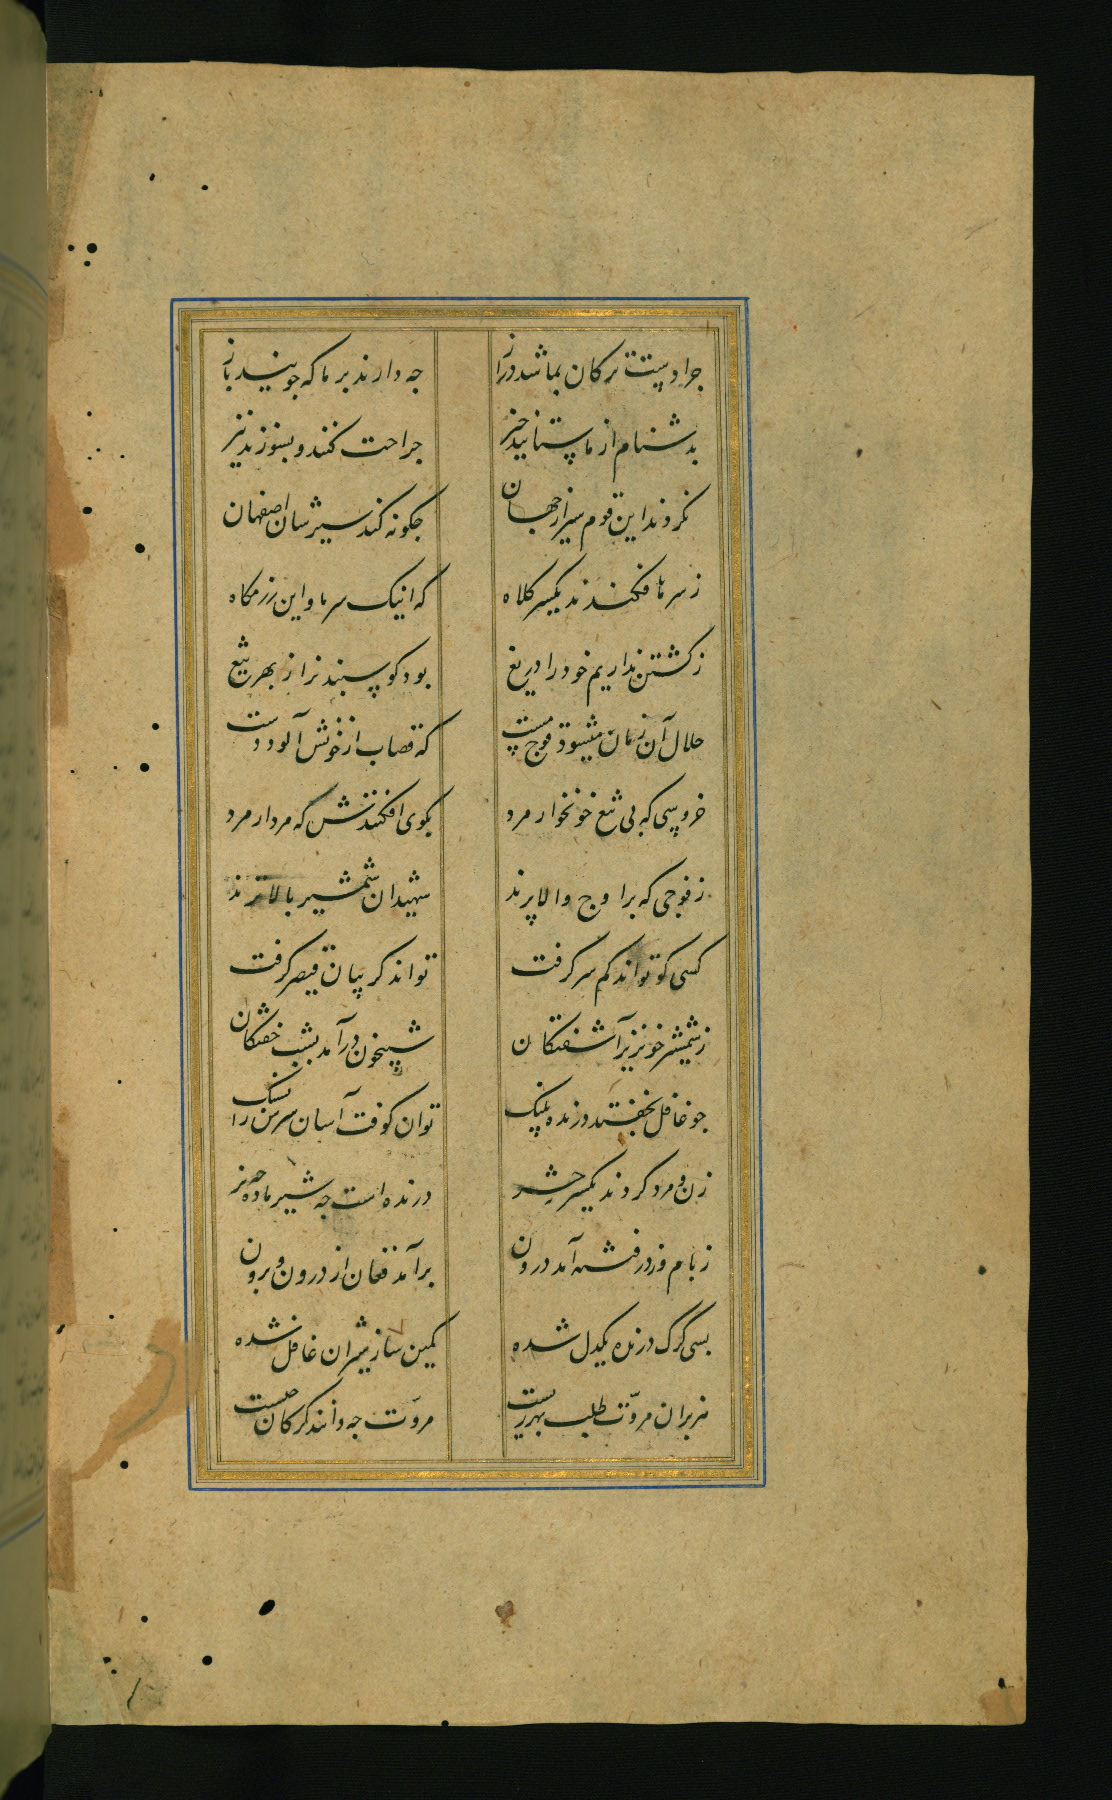 جرا دست ترکان بما شد دراز جه دارند بر ما که جویند باز
بدشنام از ما ستانید جیز جراحت کنند و بسوزند نیز
نکردند این قوم سیر از جهان جکونه کند سیرشان اصفهان
ز سرها فکندند یکسر کلاه که اینک سر ما و این رزمکاه
ز کشتن نداریم خود را دریغ بود کوسبند نر از بهر تیغ
حلال آن زمان میشود قوج مست که قصاب از خونش آلود دست
خروسی که بی تیغ خونخوار مرد بکوی افکنندش که مردار مرد
ز فوجی که بر اوج والا پرند شهیدان شمشیر بالاترند
کسی کو تواند کم سر کرفت تواند کریبان قیصر کرفت
ز شمشیر خونریز آشفتکان شبیخون درآمد بشب خفتکان
جو غافل بخفتد درنده پلنک توان کوفت آسان سرش را بسنک
زن و مرد کردند یکسر حشر درنده است جه شیر ماده جه نر
ز بام و ز در فتنه آمد درون برآمد فغان از درون و برون
بسی کرک درنده یکدل شده کمین ساز شیران غافل شده
هزبران مروّت طلب بهر زیست مروّت جه دانند کرکان که جیست